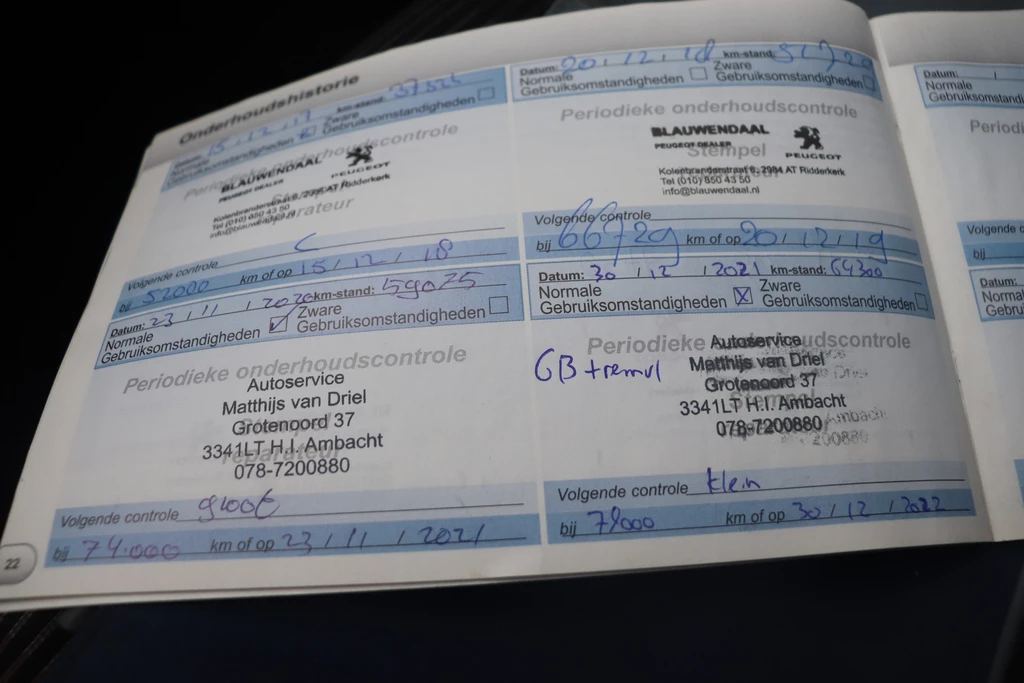 Onderhoudshistorie
Datum: 15 / 12 / 17 km-stand:
Normale Gebruiksomstandigheden Zware Gebruiksomstandigheden
Periodieke onderhoudscontrole
BLAUWENDAAL
PEUGEOT DEALER
PEUGEOT
Kolenbranderstraat 6, 2984 AT Ridderkerk
Tel (010) 850 43 50
info@blauwendaal.nl
Volgende controle C
bij 52000 km of op 15 / 12 / 18
Datum: 20 / 12 / 18 km-stand:
Normale Gebruiksomstandigheden Zware Gebruiksomstandigheden
Periodieke onderhoudscontrole
BLAUWENDAAL
PEUGEOT DEALER
Stempel
PEUGEOT
Kolenbranderstraat 6, 2984 AT Ridderkerk
Tel (010) 850 43 50
info@blauwendaal.nl
Volgende controle
bij 66729 km of op 20 / 12 / 19
Datum: 23 / 11 / 2020 km-stand: 59025
Normale Gebruiksomstandigheden Zware Gebruiksomstandigheden
Periodieke onderhoudscontrole
Autoservice
Matthijs van Driel
Grotenoord 37
3341LT H.I. Ambacht
078-7200880
Volgende controle groot
bij 74.000 km of op 23 / 11 / 2021
Datum: 30 / 12 / 2021 km-stand: 64300
Normale Gebruiksomstandigheden Zware Gebruiksomstandigheden
Periodieke onderhoudscontrole
GB + remvl
Autoservice
Matthijs van Driel
Grotenoord 37
3341LT H.I. Ambacht
078-7200880
Volgende controle klein
bij 79000 km of op 30 / 12 / 2022
22
Datum: /
Normale
Gebruiksomstandi
Periodi
Volgende c
bij
Datum:
Normal
Gebruik